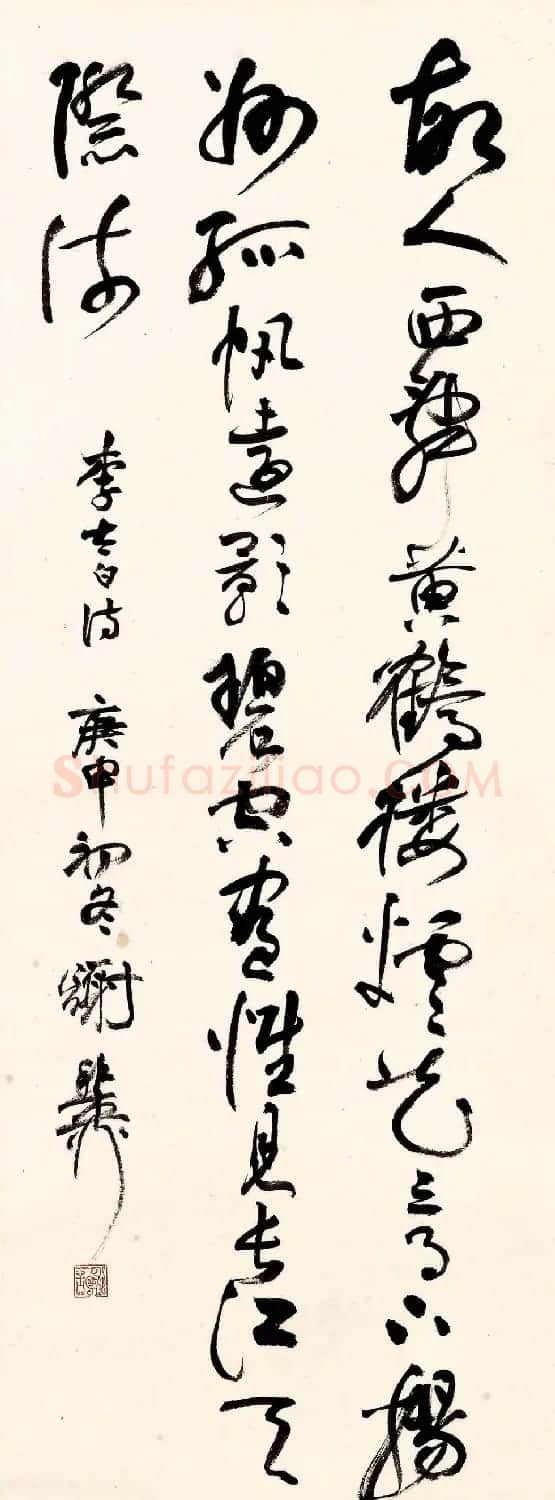 故人西辭黃鶴樓煙花三月下揚
州孤帆遠影碧空盡惟見長江天
際流
李太白詩 庚申初冬 謝
Shufaziliao.COM